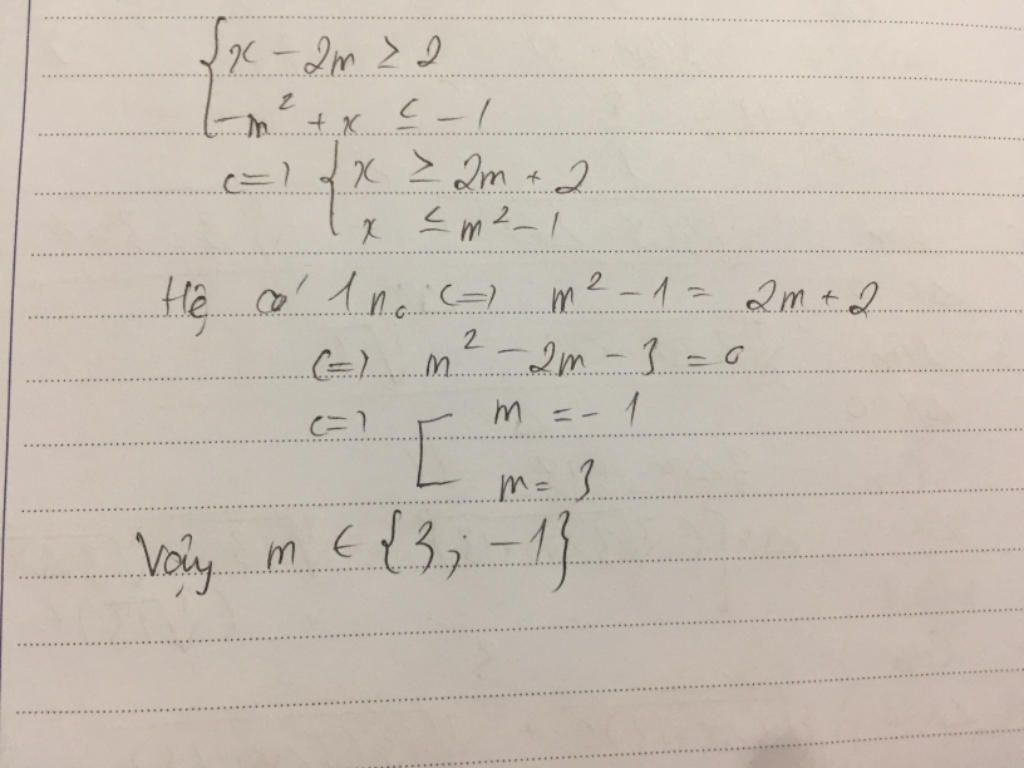 { x - 2m ≥ 2
-m² + x ≤ -1
<=> { x ≥ 2m + 2
x ≤ m² - 1
Hệ có 1 n₀ <=> m² - 1 = 2m + 2
<=> m² - 2m - 3 = 0
<=> [ m = - 1
m = 3
Vậy m ∈ {3; -1}